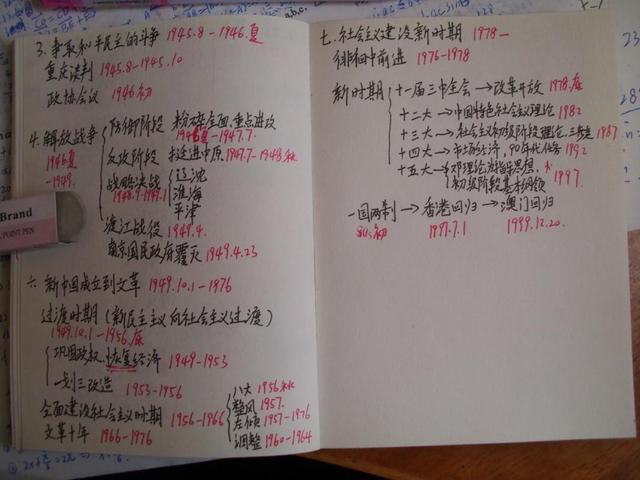 3. 争取和平民主的斗争 1945.8-1946.夏
重庆谈判 1945.8-1945.10
政协会议 1946初
4. 解放战争
1946夏
-1949.
防御阶段 粉碎全面、重点进攻
1946夏-1947.7.
反攻阶段 挺进中原 1947.7-1948秋
战略决战
1948.9-1949.1
辽沈
淮海
平津
渡江战役 1949.4.
南京国民政府覆灭 1949.4.23
六、新中国成立到文革 1949.10.1-1976
过渡时期(新民主主义向社会主义过渡)
1949.10.1-1956.底
巩固政权、恢复经济 1949-1953
一划三改造 1953-1956
全面建设社会主义时期 1956-1966
八大 1956秋
整风 1957.
左倾 1957-1976
调整 1960-1964
文革十年 1966-1976
七、社会主义建设新时期 1978-
徘徊中前进 1976-1978
新时期
十一届三中全会→改革开放 1978.底
十二大→中国特色社会主义理论 1982
十三大→社会主义初级阶段理论、三步走 1987
十四大→市场经济, 90年代任务 1992
十五大→邓理论为指导思想,
初级阶段基本纲领 1997.
一国两制→香港回归→澳门回归
80s初 1997.7.1 1999.12.20.
Brand
POINT PEN